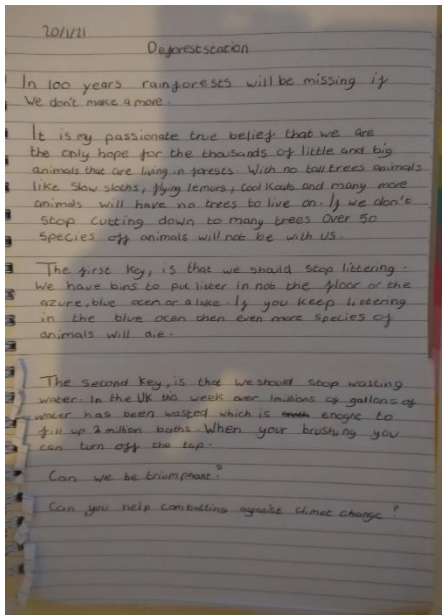 20/1/21
Deforeststation
In 100 years rainforests will be missing if
we don't make a more.
It is my passionate true belief that we are
the only hope for the thousands of little and big
animals that are living in forests. With no tall trees animals
like slow sloths, flying lemurs, cool koals and many more
animals will have no trees to live on. If we don't
stop cutting down to many trees over 50
species off animals will not be with us.
The first key, is that we should stop littering.
We have bins to put litter in not the floor or the
azure, blue ocen or a lake. If you keep littering
in the blue ocen then even more species of
animals will die.
The second key, is that we should stop wasting
water. In the UK this week over 1millions of gallons of
water has been wasted which is enogre to
fill up 2 million baths. When your brushing you
can turn off the tap.
Can we be triumphant?
Can you help combatting agnaist climet change?